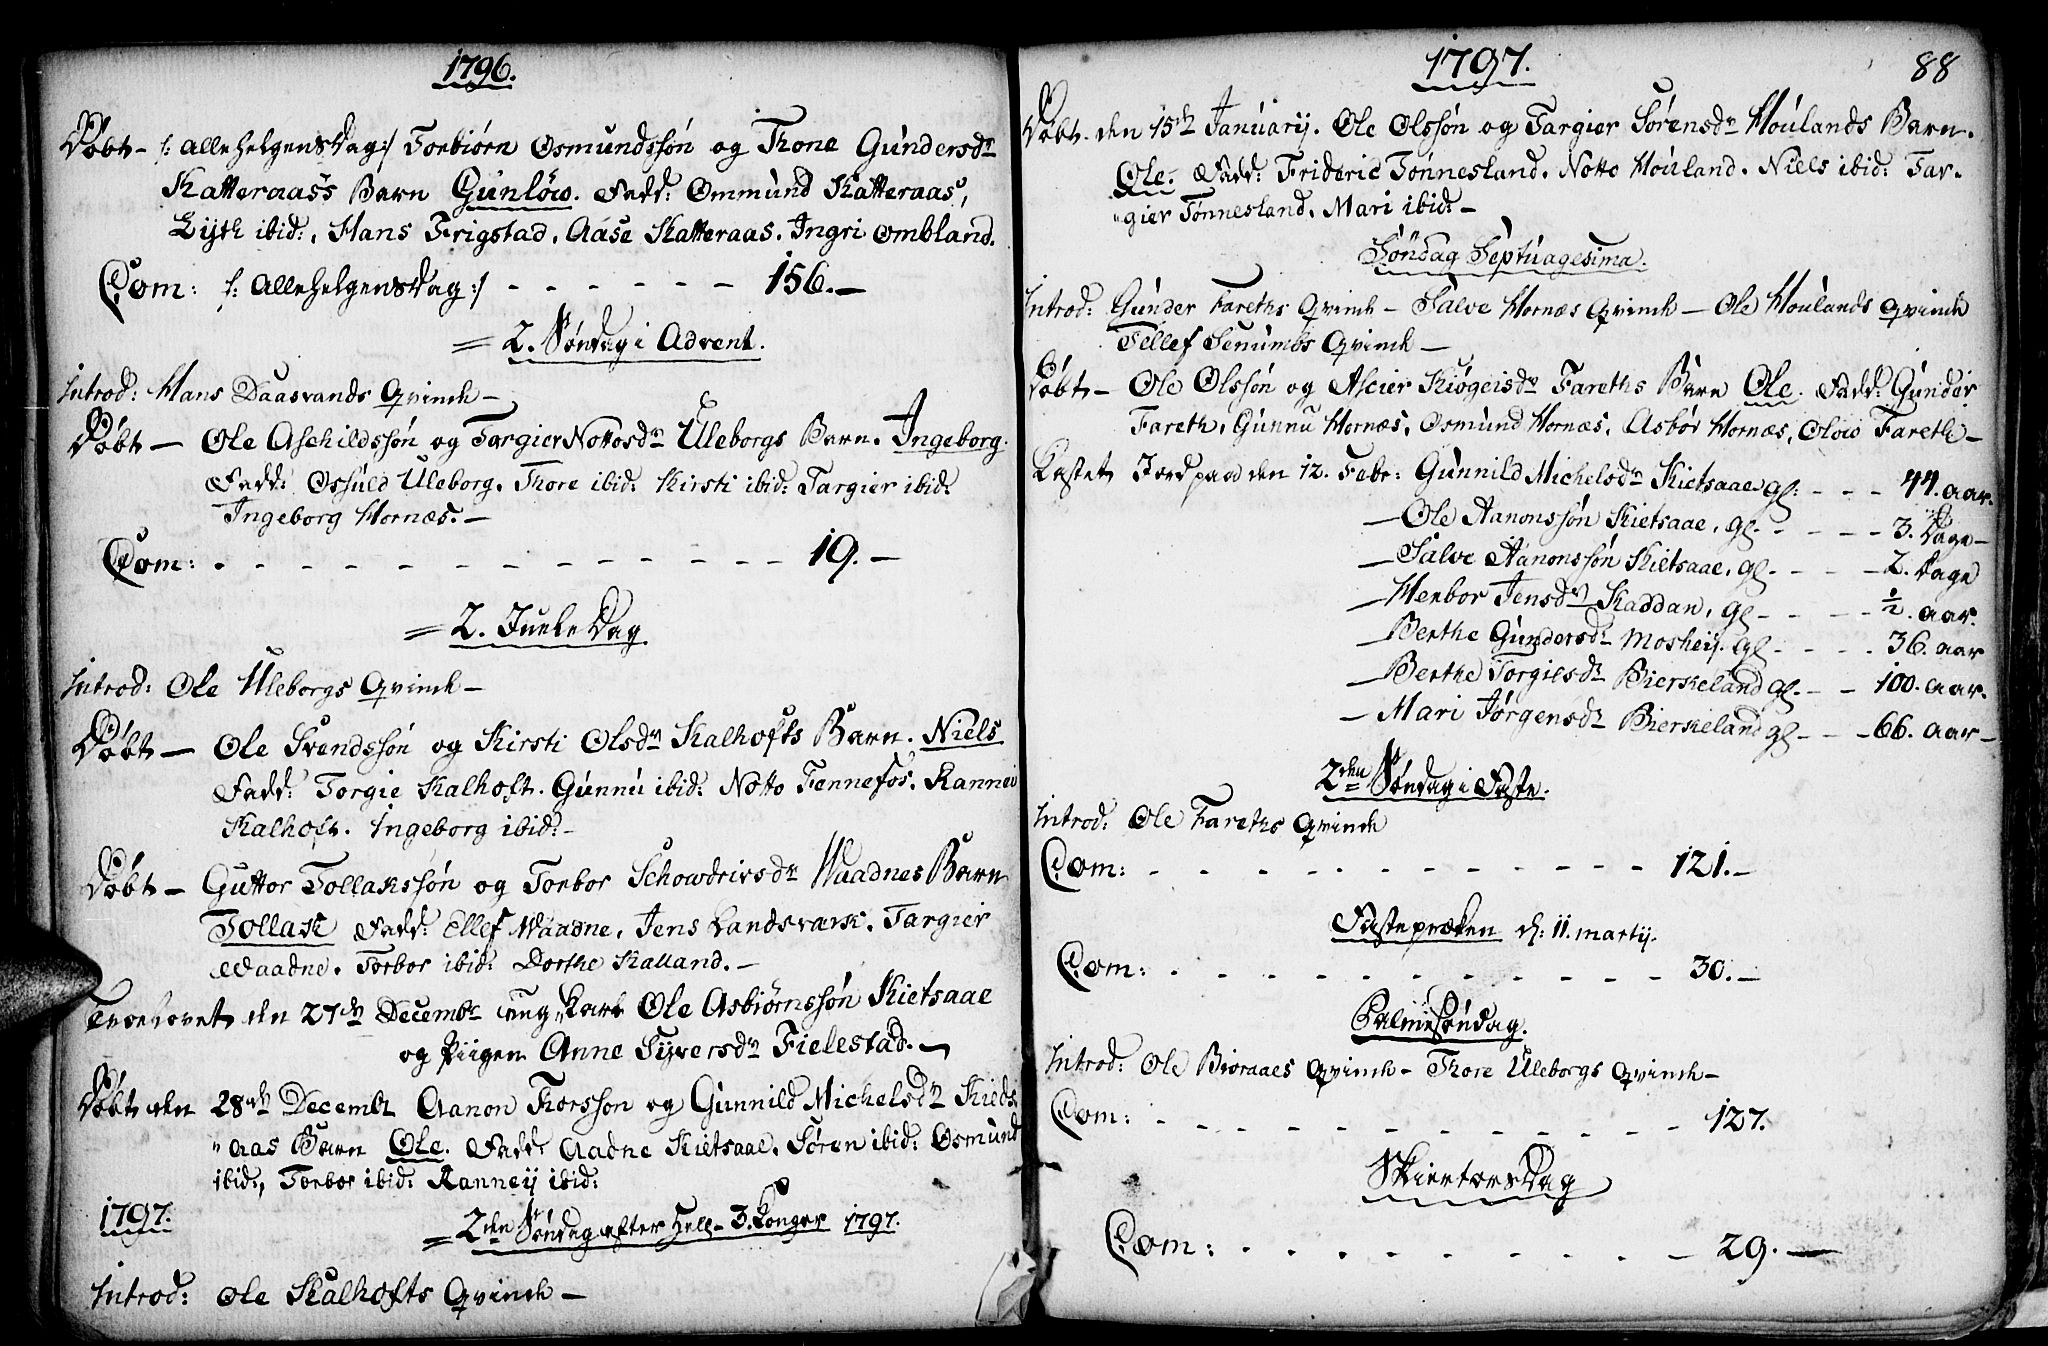 1796.
Døbt - /: Allehelgensdag :/ Torbiørn Osmundssøn og Thone Gundersdr
Katteraas's Barn Gunløw. Fadd: Ommund Katteraas,
Lyth ibid:, Hans Frigstad, Aase Katteraas. Ingri Ombland.
Com: /: Allehelgensdag :/ - - - - - - 156. -
= 2. Søndag i Advent.
Introd: Hans Daasvands Qvinde -
Døbt - Ole Aschildssøn og Targier Nottosdr Uleborgs Barn. Ingeborg.
Fadd: Osßuld Uleborg. Thore ibid: Kirsti ibid: Targier ibid:
Ingeborg Hornæs. -
Com: - - - - - - - - - - - 19. -
= 2. Juele Dag
Introd: Ole Uleborgs Qvinde -
Døbt - Ole Svendssøn og Kirsti Olsdr Kalhofts Barn. Niels
Fadd: Torgie Kalhoft. Gunnu ibid: Notto Fennefos. Rannei
Kalhoft. Ingeborg ibid: -
Døbt - Guttor Tollakssøn og Torbor Schowdrivsdr Waadnes Barn
Tollak Fadd: Ellef Waadne, Jens Landsværk. Targier
Waadne. Torbor ibid: Dorthe Kalland. -
Troelovet den 27de Decembr ung Karl Ole Asbiørnssøn Kietsaae
og Piigen Anne Syversdr Fielestad. -
Døbt den 28de Decembr Aanon Thorsson og Gunnild Michelsdr Kieds
"aas Barn Ole. Fadd: Aadne Kietsaae. Søren ibid: Osmund
ibid:, Torbor ibid: Ranneij ibid:
1797. = 2den Søndag efter Hell. 3. Konger 1797.
Introd: Ole Kalhofts Qvinde -
1797. 88
Døbt. den 15de Januarij. Ole Olssøn og Targier Sørensdr Houlands Barn.
Ole. Fadd: Frideric Tønnesland. Notto Houland. Niels ibid: Tar-
"gier Tønnesland, Mari ibid: -
Søndag Septuagesima.
Introd: Gunder Fareths Qvinde - Salve Hornæs Qvinde - Ole Houlands Qvinde
Tellef Senumbs Qvinde -
Døbt - Ole Olssøn og Ascier Kiøgeisdr Fareths Barn Ole. Fadd: Gunder
Fareth, Gunnu Hornæs, Osmund Hornæs, Asbør Hornæs, Olow Fareth -
Kastet Jord paa den 12. Febr: Gunnild Michelsdr Kietsaae gl: - - - 44. aar.
- Ole Aanonssøn Kietsaae, gl. - - - - 3. Dage -
- Salve Aanonssøn Kietsaae, gl - - - - 2. Dage
- Herbor Jensdr Kaddan, gl - - - - ½. aar.
- Berthe Gundersdr Mosheij. gl - - - - 36. aar
- Berthe Torgilsdr Bierkeland gl. - - - 100. aar.
- Mari Jørgensdr Bierkeland gl - - - 66. aar -
2den Søndag i Faste.
Introd: Ole Fareths Qvinde
Com: - - - - - - - - - - - 121. -
Fastepræken d: 11. martij.
Com: - - - - - - - - - - - 30. -
Palmesøndag.
Introd: Ole Bioraaes Qvinde - Thore Uleborgs Qvinde -
Com: - - - - - - - - - - - 127.
Skiertorsdag
Com: - - - - - - - - - - 29. -